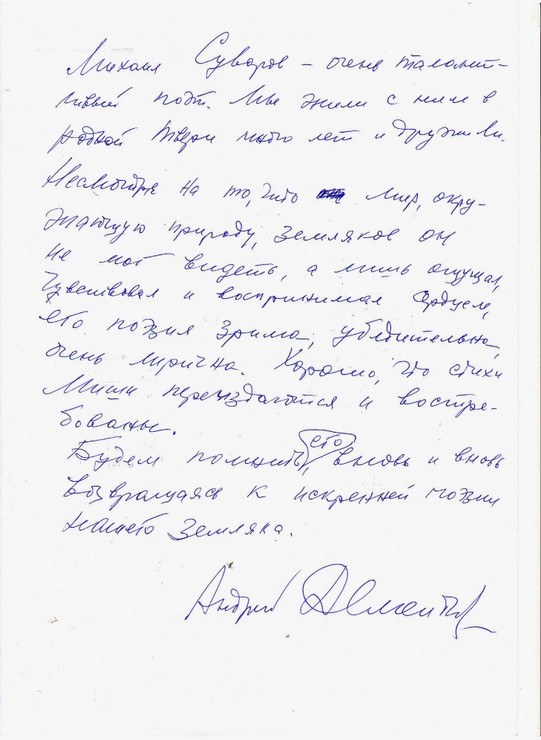 Михаил Суворов – очень талант-
ливый поэт. Мы жили с ним в
родной Твери много лет и дружили.
Несмотря на то, что мир, окру-
жающую природу, земляков он
не мог видеть, а лишь ощущал,
чувствовал и воспринимал сердцем,
его поэзия зрима, убедительна,
очень лирична. Хорошо, что стихи
Миши переиздаются и востре-
бованы.
Будем помнить его, вновь и вновь
возвращаясь к искренней поэзии
нашего земляка.
Андрей Дементьев